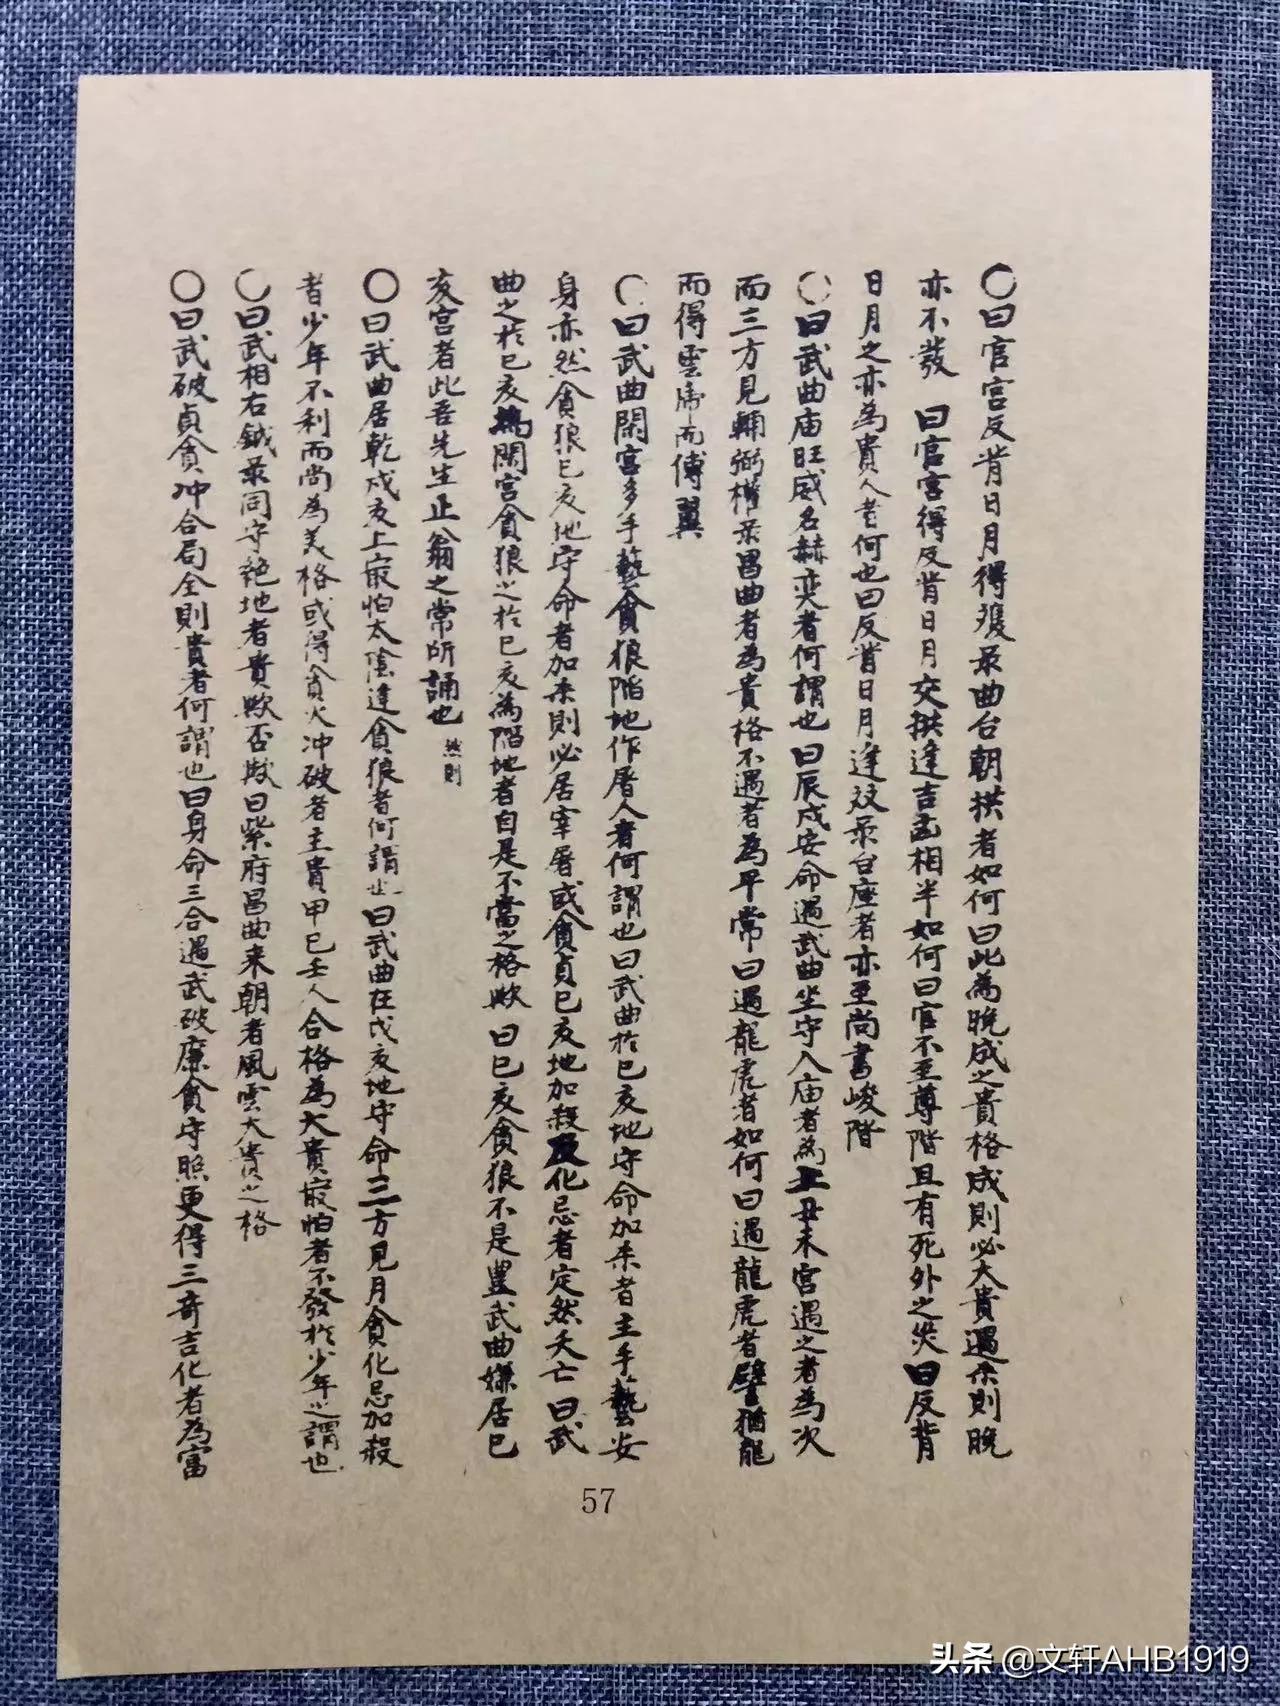 〇曰官宮反背日月得獲彔曲台朝拱者如何曰此為晚成之貴格成則必大貴遇杀則晚
亦不發 曰官宮得反背日月交拱逢吉凶相半如何曰官不至尊階且有死外之灾曰反背
日月之亦為貴人者何也曰反背日月逢双彔台座者亦至尚書峻階
〇曰武曲庙旺威名赫奕者何謂也曰辰戍安命遇武曲坐守入庙者為上丑未宮遇之者為次
而三方見輔弼權彔昌曲者為貴格不遇者為平常曰遇龍虎者如何曰遇龍虎者譬猶龍
而得雲虎而傅翼
〇曰武曲閑宮多手藝貪狼陷地作屠人者何謂也曰武曲於巳亥地守命加杀者主手藝安
身亦然貪狼巳亥地守命者加杀則必居宰屠或貪貞巳亥地加殺及化忌者定然夭亡曰武
曲之於巳亥為閑宮貪狼之於巳亥為陷地者自是不當之格欤曰巳亥貪狼不是豊武曲嫌居巳
亥宮者此吾先生止翁之常所誦也 然則
〇曰武曲居乾戍亥上最怕太陰逢貪狼者何謂也曰武曲在戍亥地守命三方見月貪化忌加殺
者少年不利而尚為美格或得貪火冲破者主貴甲巳壬人合格為大貴最怕者不發於少年之謂也
〇曰武相右鉞彔同守絶地者貴欤否欤曰紫府昌曲来朝者風雲大貴之格
〇曰武破貞貪冲合局全則貴者何謂也曰身命三合遇武破廉貪守照更得三奇吉化者為富
57
头条 @文轩AHB1919